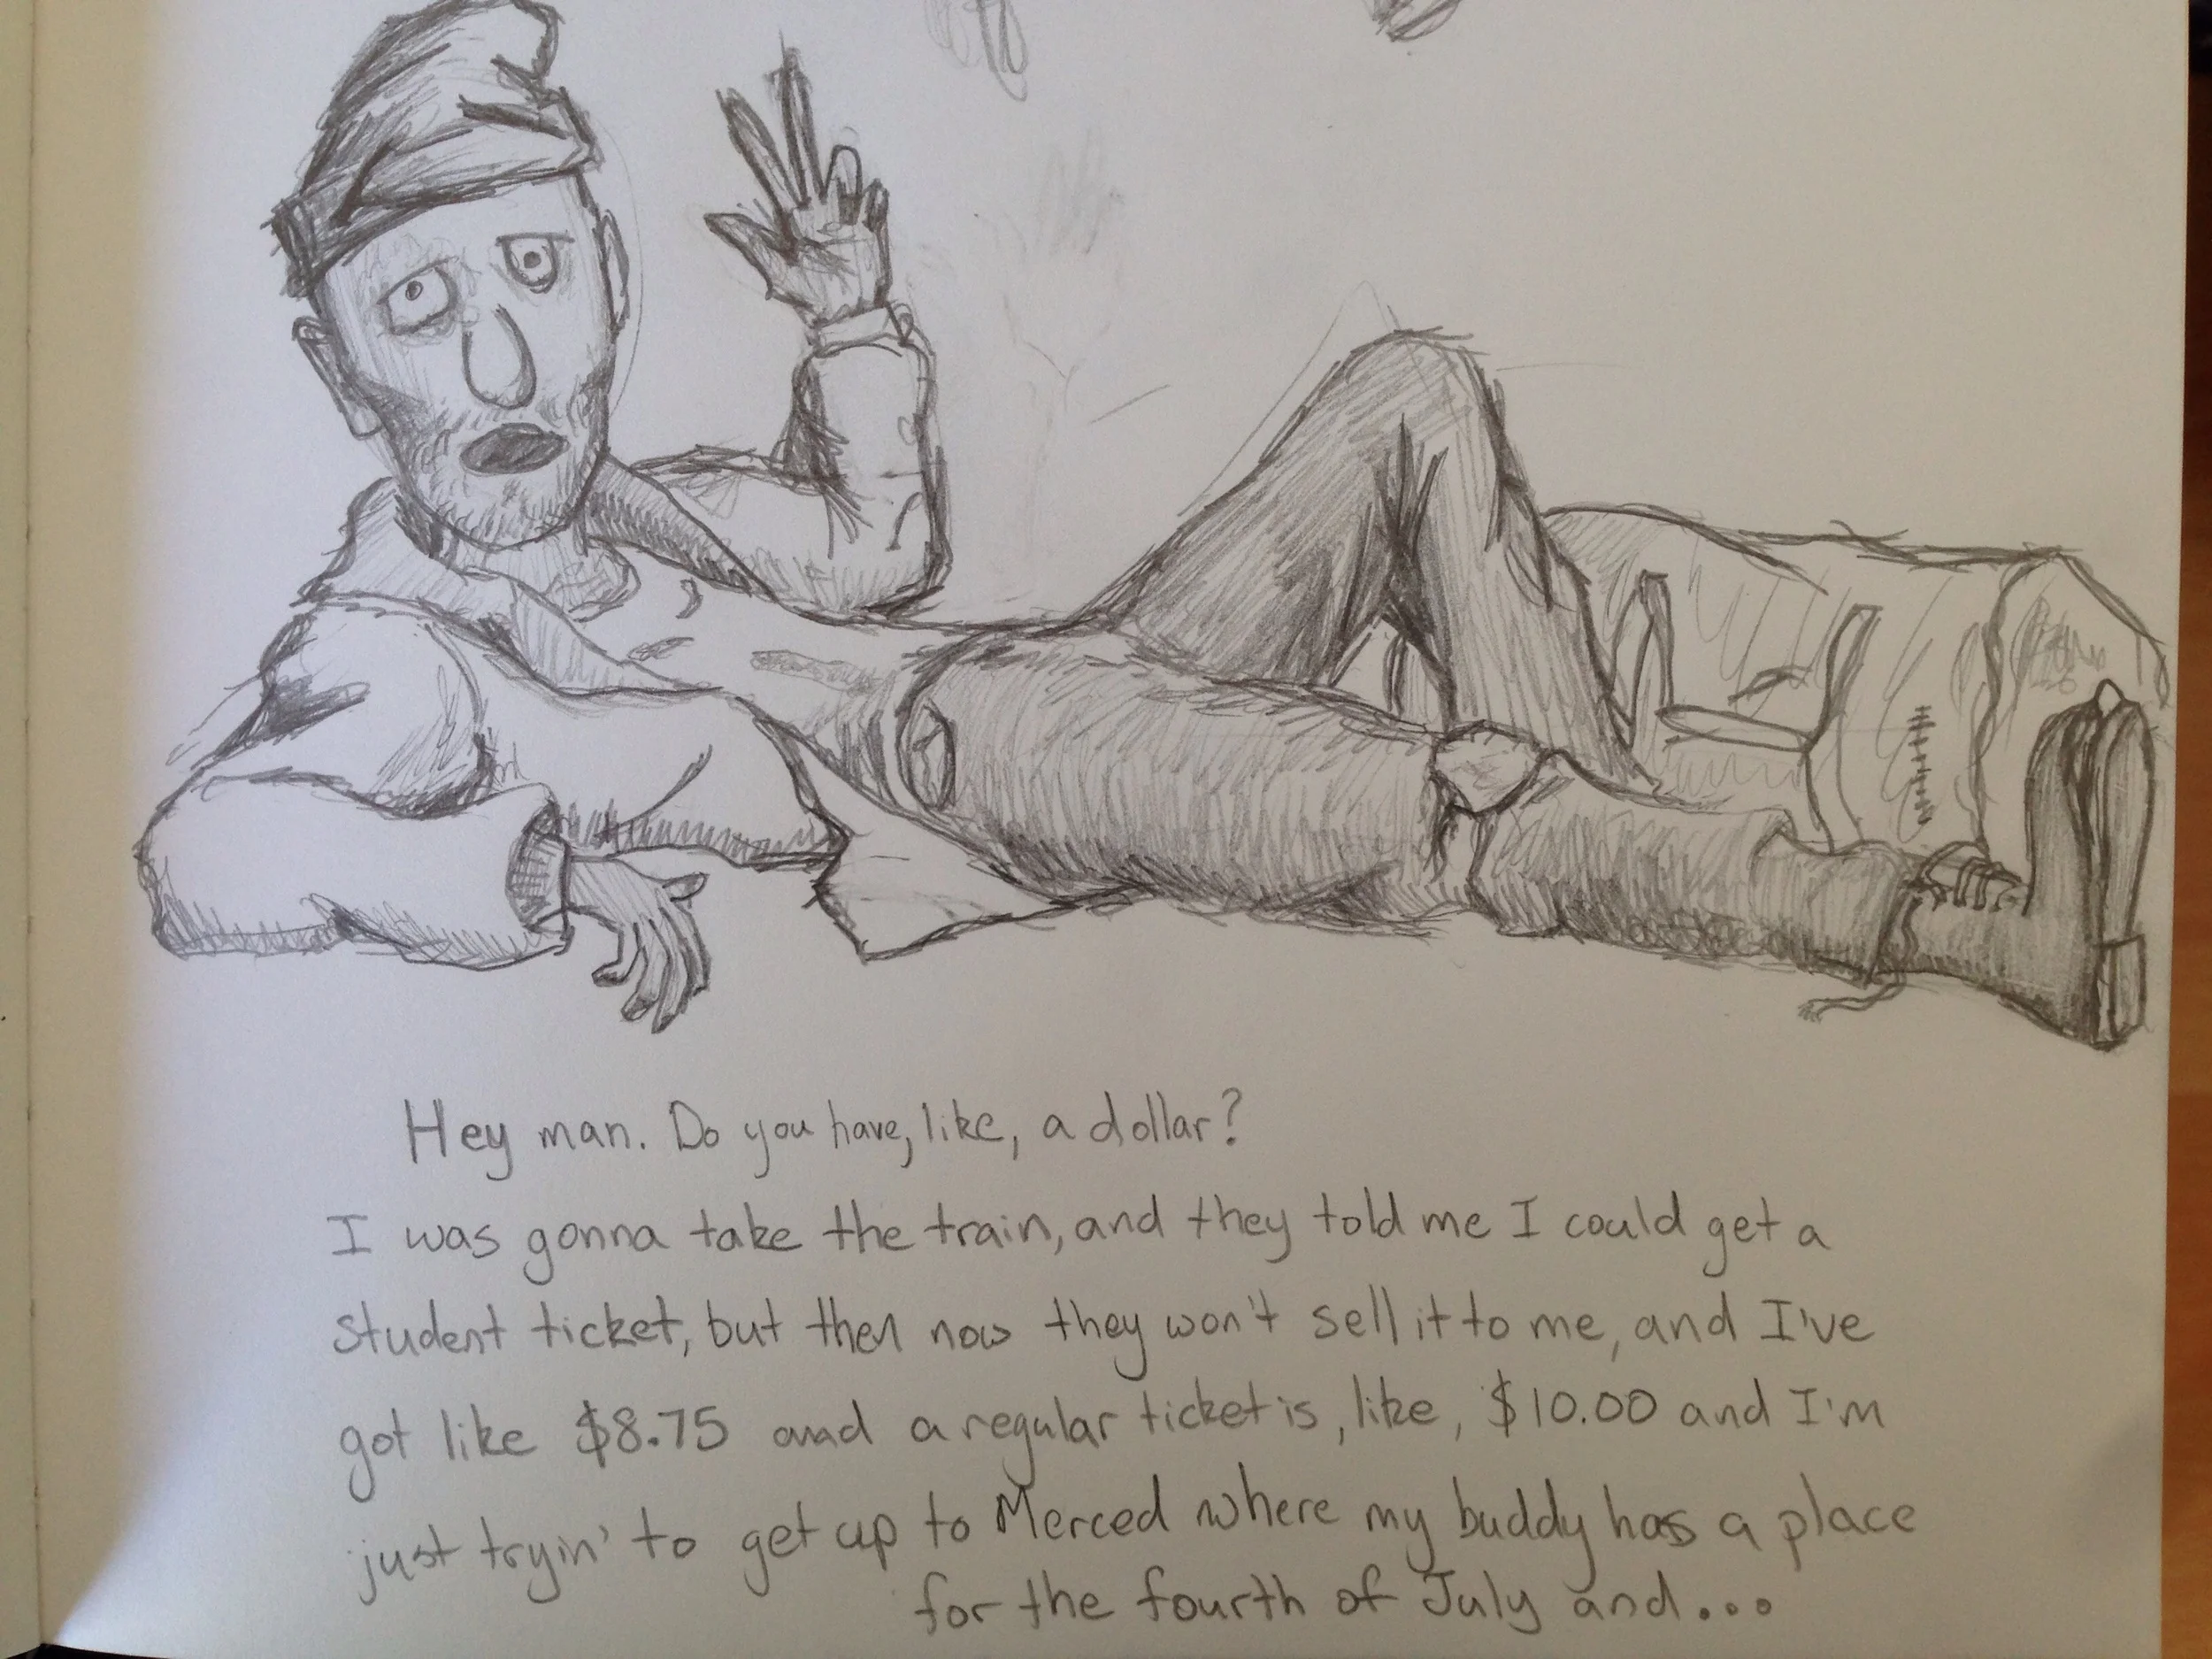 Hey man. Do you have, like, a dollar?
I was gonna take the train, and they told me I could get a
student ticket, but then now they won't sell it to me, and I've
got like $8.75 and a regular ticket is, like, $10.00 and I'm
just tryin' to get up to Merced where my buddy has a place
for the fourth of July and...